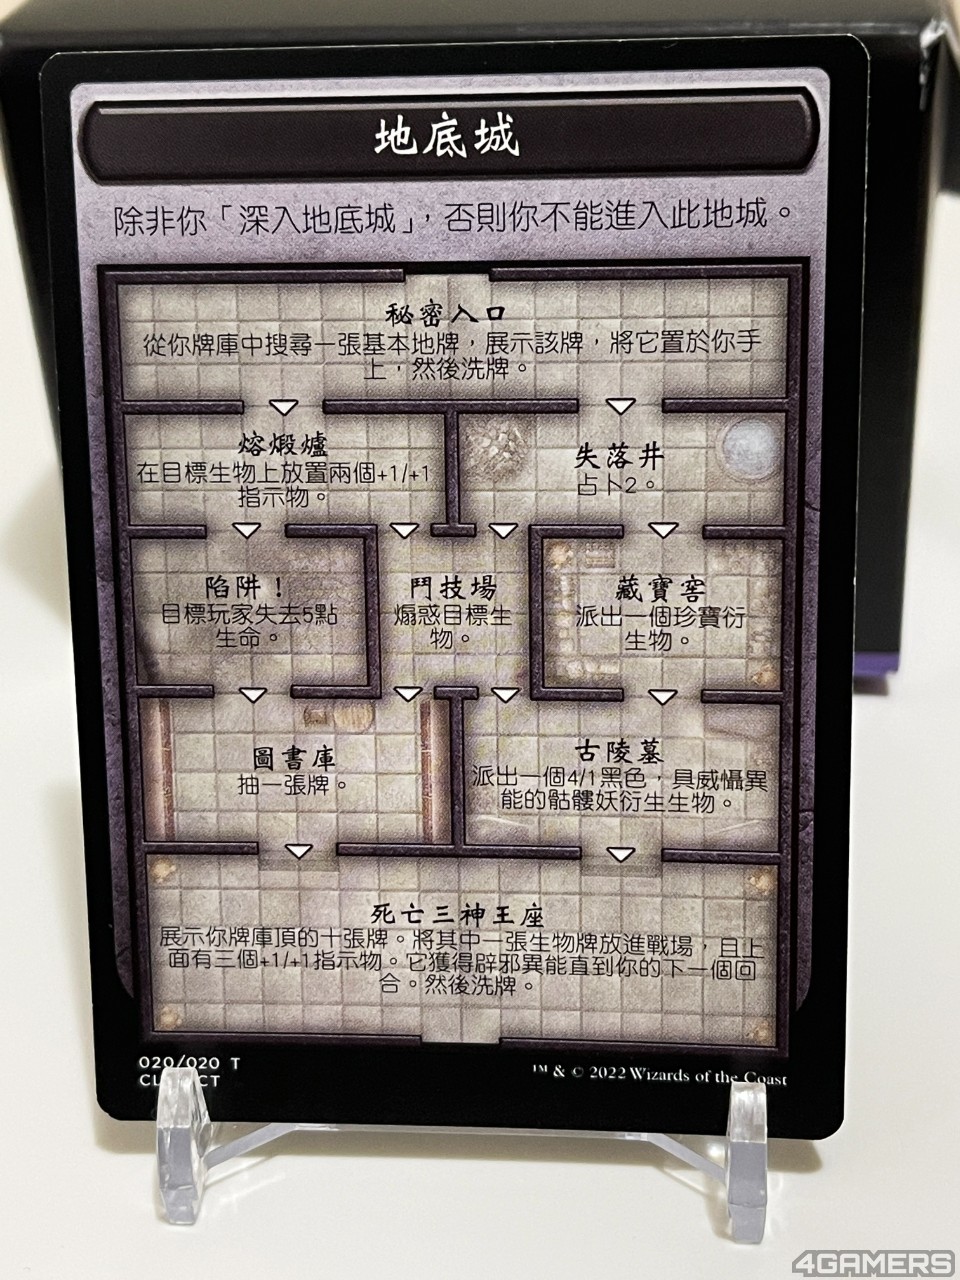 地底城
除非你「深入地底城」，否則你不能進入此地城。
秘密入口
從你牌庫中搜尋一張基本地牌，展示該牌，將它置於你手
上，然後洗牌。
熔煅爐
在目標生物上放置兩個+1/+1
指示物。
失落井
占卜2。
陷阱！
目標玩家失去5點
生命。
鬥技場
煽惑目標生
物。
藏寶窖
派出一個珍寶衍
生物。
圖書庫
抽一張牌。
古陵墓
派出一個4/1黑色，具威懾異
能的骷髏妖衍生生物。
死亡三神王座
展示你牌庫頂的十張牌。將其中一張生物牌放進戰場，且上
面有三個+1/+1指示物。它獲得辟邪異能直到你的下一個回
合。然後洗牌。
020/020 T
™ & © 2022 Wizards of the Coast
4GAMERS